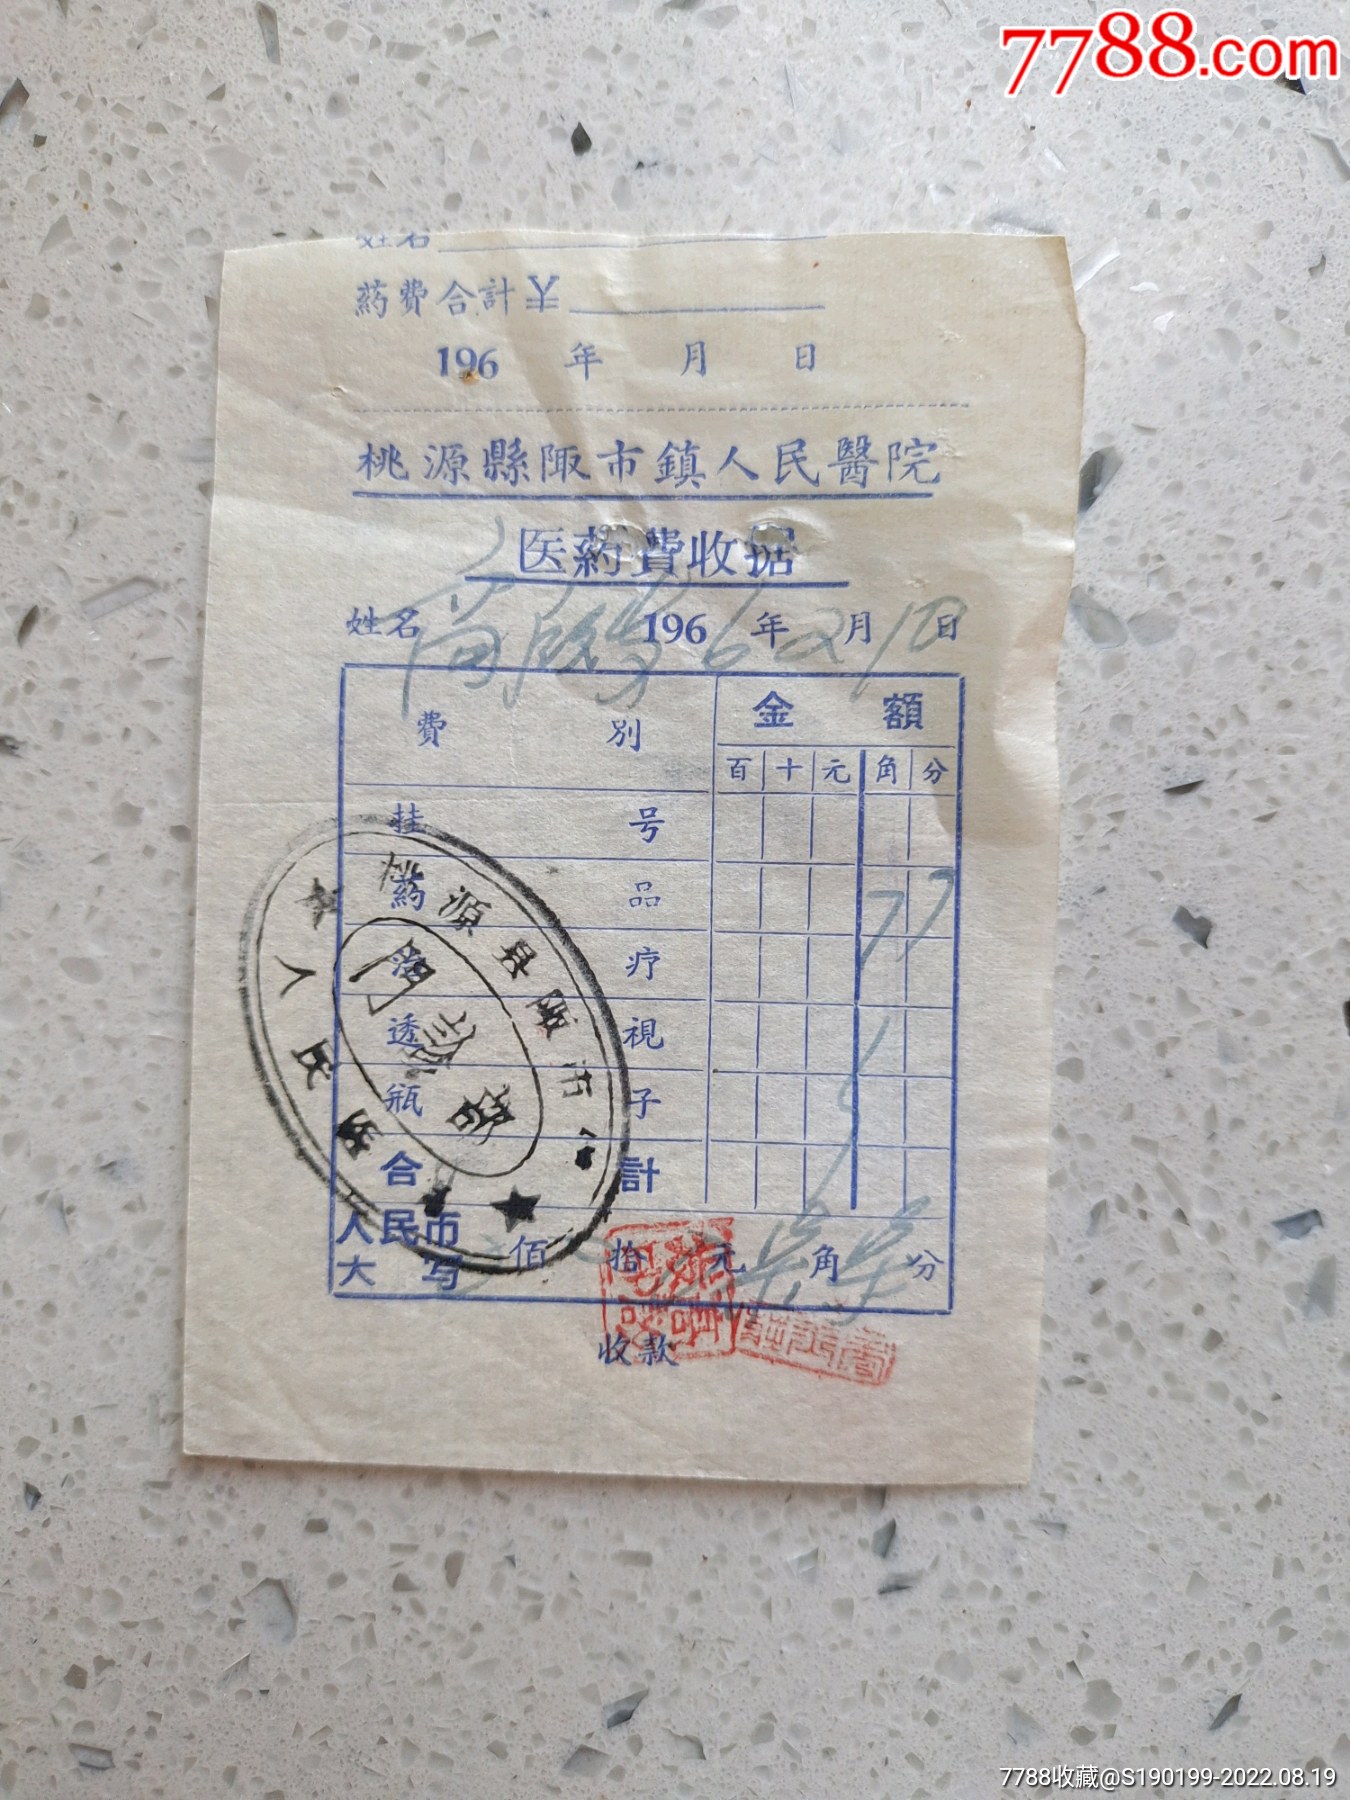 7788.com
姓名
葯費合計¥
196 年 月 日
桃源縣陬市鎮人民醫院
医葯費收据
姓名 1966年2月12日
費別 金額
百 十 元 角 分
挂号
葯品 7 7
治疗
透視
瓶子
合計
人民币大写 佰 拾 元 柒角柒分
收款
桃源县陬市
人民医
门诊
7788收藏@S190199-2022.08.19